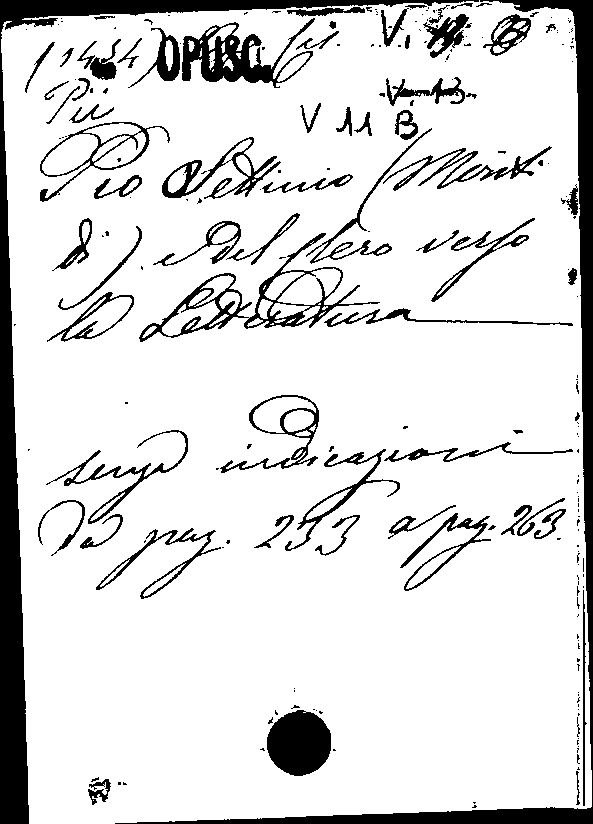 (1434) OPUSC. V. 19. B
V 11 B
Pii
Pio Settimo (Meriti
di). e del Clero verso
la Letteratura
senza indicazioni
Da pag. 233 a pag. 263.